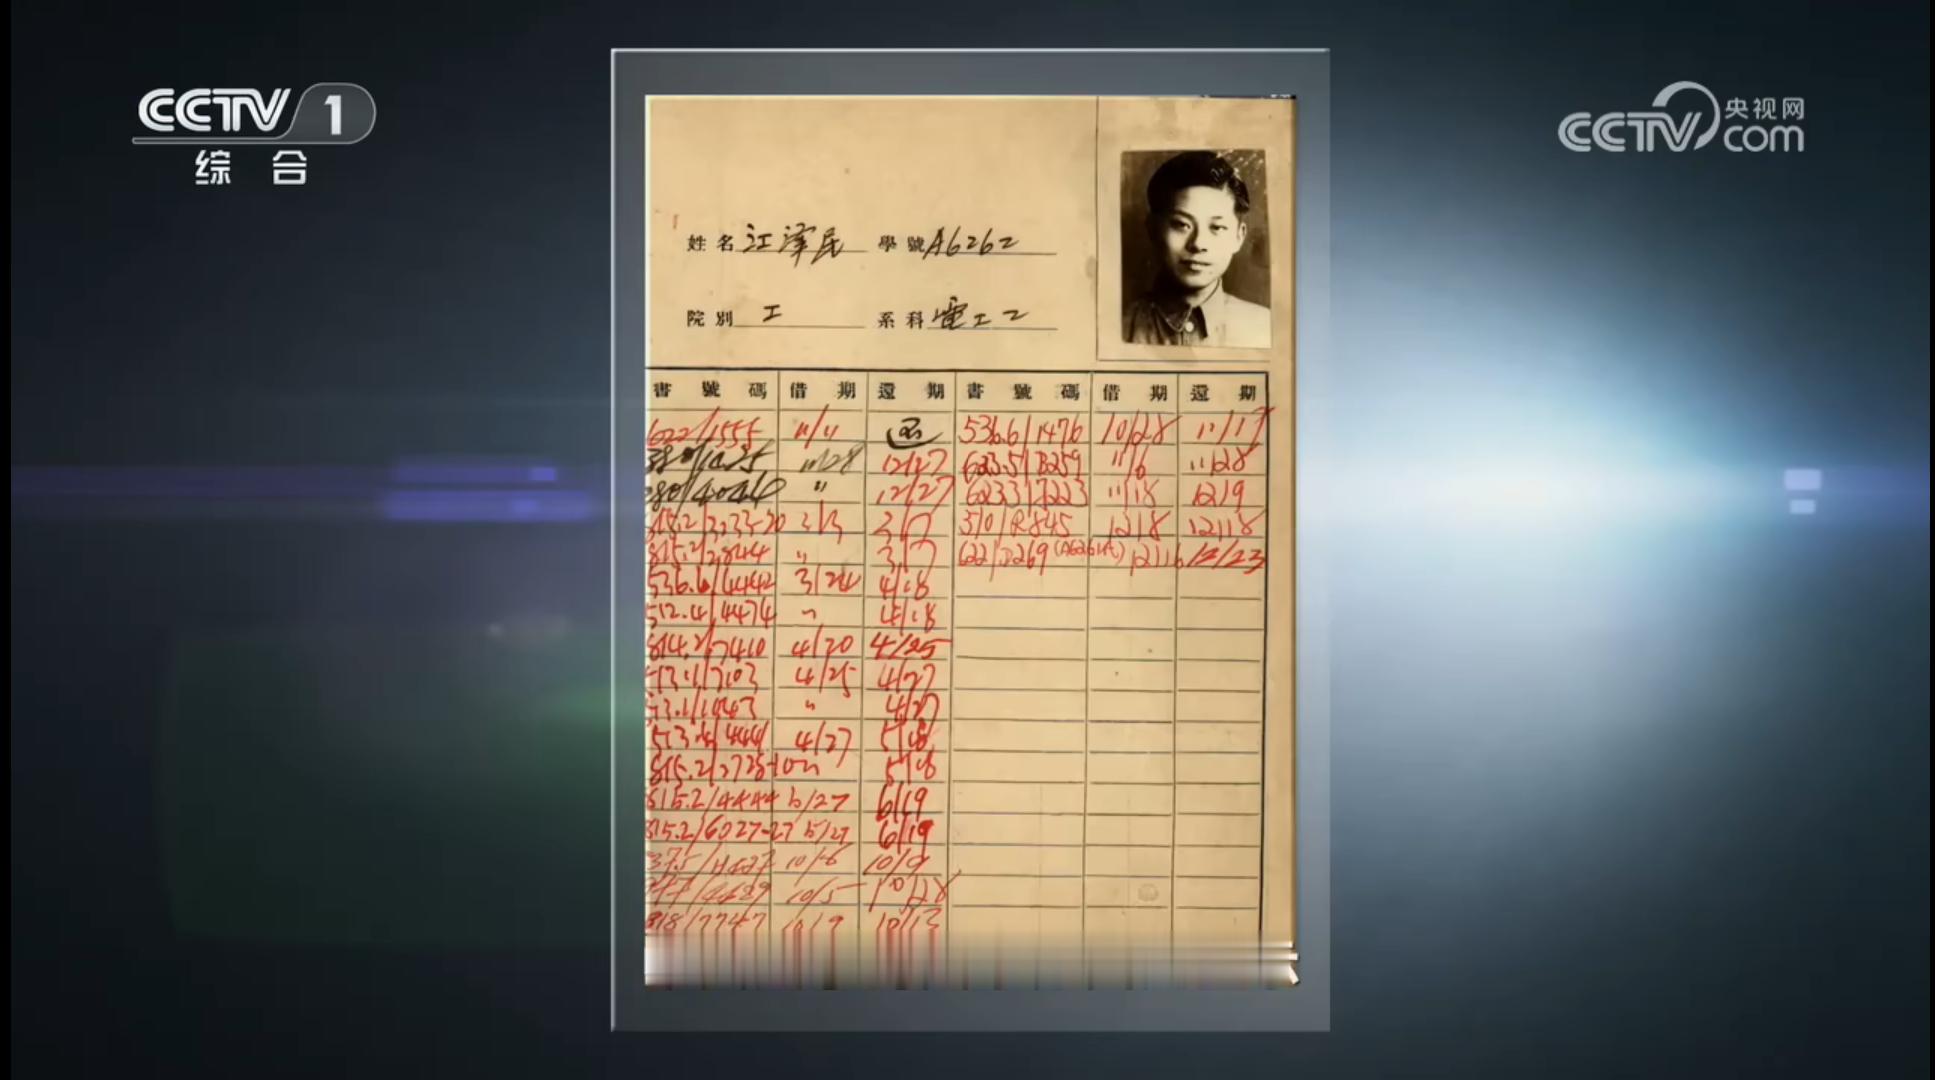 CCTV 1
综合
央视网
CCTV com
姓名 江澤民 學號 A6262
院別 工 系科 電工二
書號碼 借期 還期 書號碼 借期 還期
622/1555 11/11 还 536.6/1476 10/28 11/17
11/28 12/27 623.5/B259 11/6 11/28
〃 12/27 623.3/7223 11/18 12/9
3/3 3/7 510/R845 12/8 12/18
815.2/2844 〃 3/7 622/D269 12/16 12/23
536.6/4442 3/24 4/18
512.4/4474 〃 4/18
814.2/7410 4/20 4/25
513.1/7103 4/25 4/27
513.1/1043 〃 4/27
513.4/4441 4/27 5/18
5/18
815.2/4444 5/27 6/19
815.2/6027-27 5/27 6/19
10/9
10/5 10/28
818/7747 10/9 10/13